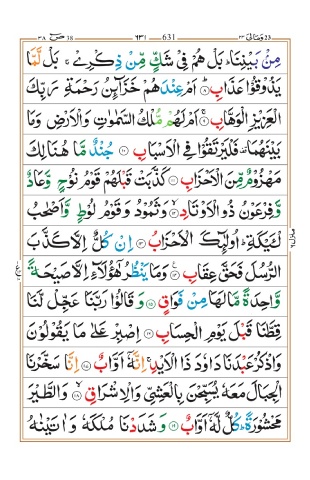 ٣٨ صٓ 38 ٦٣١ 631 ٢٣ وَمَالِىَ 23
مِنْۢ بَيْنِنَا ؕ بَلْ هُمْ فِىْ شَكٍّ مِّنْ ذِكْرِىْ ۚ بَلْ لَّمَّا
يَذُوْقُوْا عَذَابِ ؕ‏ ﴿۸﴾ اَمْ عِنْدَهُمْ خَزَآٮِٕنُ رَحْمَةِ رَبِّكَ
الْعَزِيْزِ الْوَهَّابِ‌ ۚ‏ ﴿۹﴾ اَمْ لَهُمْ مُّلْكُ السَّمٰوٰتِ وَالْاَرْضِ وَمَا
بَيْنَهُمَا فَلْيَرْتَقُوْا فِى الْاَسْبَابِ‏ ﴿۱۰﴾ جُنْدٌ مَّا هُنَالِكَ
مَهْزُوْمٌ مِّنَ الْاَحْزَابِ‏ ﴿۱۱﴾ كَذَّبَتْ قَبْلَهُمْ قَوْمُ نُوْحٍ وَّعَادٌ
وَّفِرْعَوْنُ ذُو الْاَوْتَادِ ۙ‏ ﴿۱۲﴾ وَثَمُوْدُ وَقَوْمُ لُوْطٍ وَّاَصْحٰبُ
لْئَيْكَةِ‌ ؕ اُولٰٓٮِٕكَ الْاَحْزَابُ‏ ﴿۱۳﴾ اِنْ كُلٌّ اِلَّا كَذَّبَ
الرُّسُلَ فَحَقَّ عِقَابِ‏ ﴿۱۴﴾ وَمَا يَنْظُرُ هٰٓؤُلَاۤءِ اِلَّا صَيْحَةً
وَّاحِدَةً مَّا لَهَا مِنْ فَوَاقٍ‏ ﴿۱۵﴾ وَقَالُوْا رَبَّنَا عَجِّلْ لَّنَا
قِطَّنَا قَبْلَ يَوْمِ الْحِسَابِ‏ ﴿۱۶﴾ اِصْبِرْ عَلٰى مَا يَقُوْلُوْنَ
وَاذْكُرْ عَبْدَنَا دَاوٗدَ ذَا الْاَيْدِ‌ ۚ اِنَّهٗۤ اَوَّابٌ‏ ﴿۱۷﴾ اِنَّا سَخَّرْنَا
الْجِبَالَ مَعَهٗ يُسَبِّحْنَ بِالْعَشِىِّ وَالْاِشْرَاقِ ۙ‏ ﴿۱۸﴾ وَالطَّيْرَ
مَحْشُوْرَةً ؕ كُلٌّ لَّهٗۤ اَوَّابٌ‏ ﴿۱۹﴾ وَشَدَدْنَا مُلْكَهٗ وَاٰتَيْنٰهُ